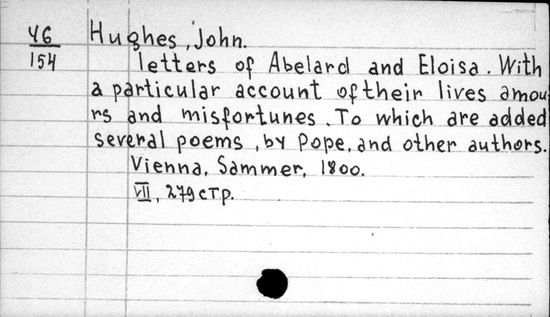 46 Hughes, John.
154 letters of Abelard and Eloisa. With
a particular account of their lives amou-
rs and misfortunes. To which are added
several poems, by Pope, and other authors.
Vienna, Sammer, 1800.
VII, 279 стр.